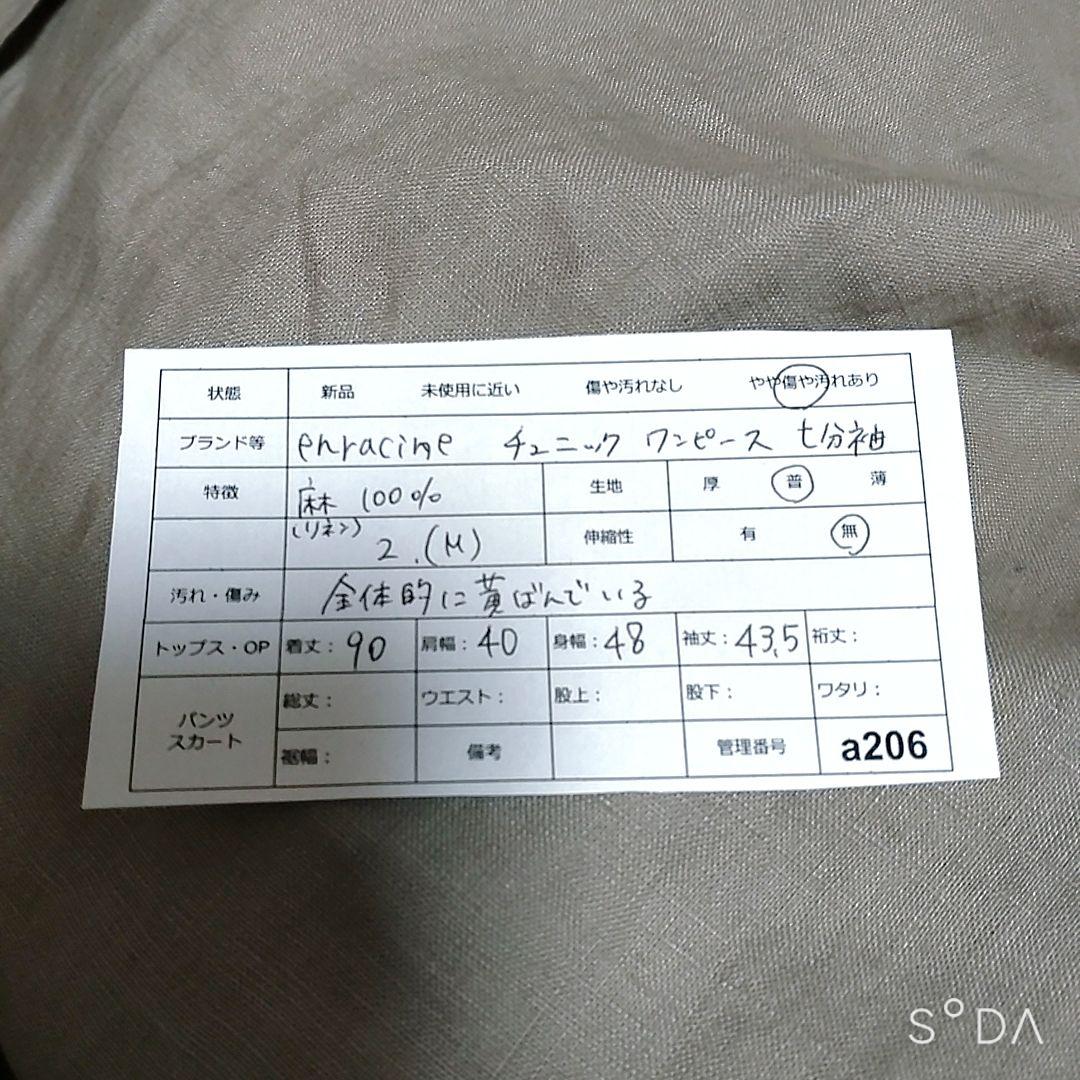 状態 新品 未使用に近い 傷や汚れなし やや傷や汚れあり
ブランド等 enracine チュニック ワンピース 七分袖
特徴 麻 100% 生地 厚 普 薄
(リネン) 2.(M) 伸縮性 有 無
汚れ・傷み 全体的に黄ばんでいる
トップス・OP 着丈：90 肩幅：40 身幅：48 袖丈：43.5 裄丈：
パンツ スカート 総丈： ウエスト： 股上： 股下： ワタリ：
裾幅： 備考 管理番号 a206
SODA